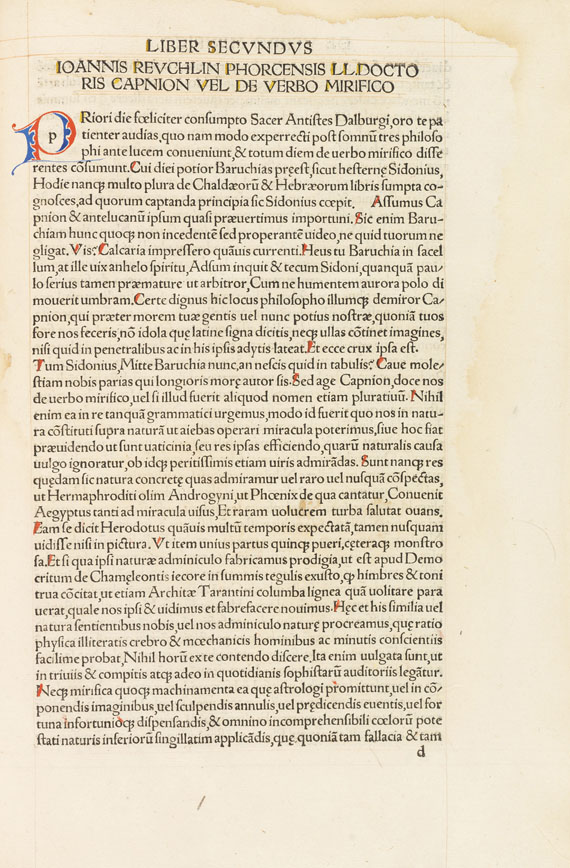 LIBER SECVNDVS
IOANNIS REVCHLIN PHORCENSIS LL.DOCTO
RIS CAPNION VEL DE VERBO MIRIFICO
PRiori die fœliciter consumpto Sacer Antistes Dalburgi,oro te pa
tienter audias,quo nam modo experrecti post somnũ tres philoso
phi ante lucem conueniunt,& totum diem de uerbo mirifico disse
rentes cõsumunt.Cui diei potior Baruchias pręest,sicut hesternę Sidonius,
Hodie nancꝗ multo plura de Chaldæorũ & Hebræorum libris sumpta co-
gnosces,ad quorum captanda principia sic Sidonius cœpit. Assumus Ca
pnion & antelucanũ ipsum quasi præuertimus importuni. Sic enim Baru-
chiam hunc quoqꝫ non incedentẽ sed properantẽ uideo,ne quid tuorum ne
gligat.Vis? Calcaria impressero quãuis currenti.Heus tu Baruchia in sacel
lum,at ille uix anhelo spiritu,Adsum inquit & tecum Sidoni,quanquã pau/
lo serius tamen præmature ut arbitror,Cum ne humentem aurora polo di
mouerit umbram.Certe dignus hic locus philosopho illumqꝫ demiror Ca/
pnion,qui præter morem tuæ gentis uel nunc potius nostræ,quoniã tuos
fore nos feceris,nõ idola quę latine signa dicitis,neqꝫ ullas cõtinet imagines,
nisi quid in penetralibus ac in his ipsis adytis lateat.Et ecce crux ipsa est.
Tum Sidonius,Mitte Baruchia nunc,an nescis quid in tabulis? Caue mole/
stiam nobis parias qui longioris morę autor sis.Sed age Capnion,doce nos
de uerbo mirifico,uel si illud fuerit aliquod nomen etiam pluratiuũ. Nihil
enim ea in re tanquã grammatici urgemus,modo id fuerit quo nos in natu-
ra cõstituti supra naturã ut aiebas operari miracula poterimus,siue hoc fiat
præuidendo ut sunt uaticinia,seu res ipsas efficiendo,quarũ naturalis causa
uulgo ignoratur,ob idqꝫ peritissimis etiam uiris admirãdas. Sunt nanqꝫ res
quędam sic natura concretę quas admiramur uel raro uel nusquã cõspectas,
ut Hermaphroditi olim Androgyni,ut Phœnix de qua cantatur,Conuenit
Aegyptus tanti ad miracula uisus,Et raram uolucrem turba salutat ouans.
Eam se dicit Herodotus quãuis multũ temporis expectatã,tamen nusquam
uidisse nisi in pictura. Vt item unius partus quinqꝫ pueri,cęteraqꝫ monstro
sa.Et si qua ipsi naturæ adminiculo fabricamus prodigia,ut est apud Demo
critum de Chamęleontis iecore in summis tegulis exusto,ꝙ himbres & toni
trua cõcitat,ut etiam Architæ Tarantini columba lignea quã uolitare para
uerat,quale nos ipsi & uidimus et fabrefacere nouimus.Hęc et his similia uel
natura sentientibus nobis,uel nos adminiculo naturę procreamus,quę ratio
physica illiteratis crebro & mœchanicis hominibus ac minutis conscientiis
facilime probat,Nihil horũ ex te contendo discere,Ita enim uulgata sunt,ut
in triuiis & compitis atqꝫ adeo in quotidianis sophistarũ auditoriis legãtur.
Neqꝫ mirifica quoqꝫ machinamenta ea quę astrologi promittunt,uel in cõ/
ponendis imaginibus,uel sculpendis annulis,uel prędicendis euentis,uel for
tuna infortunioqꝫ dispensandis,& omnino incomprehensibili cœlorũ pote
stati naturis inferiorũ singillatim applicãdis,quę quoniã tam fallacia & tam
d